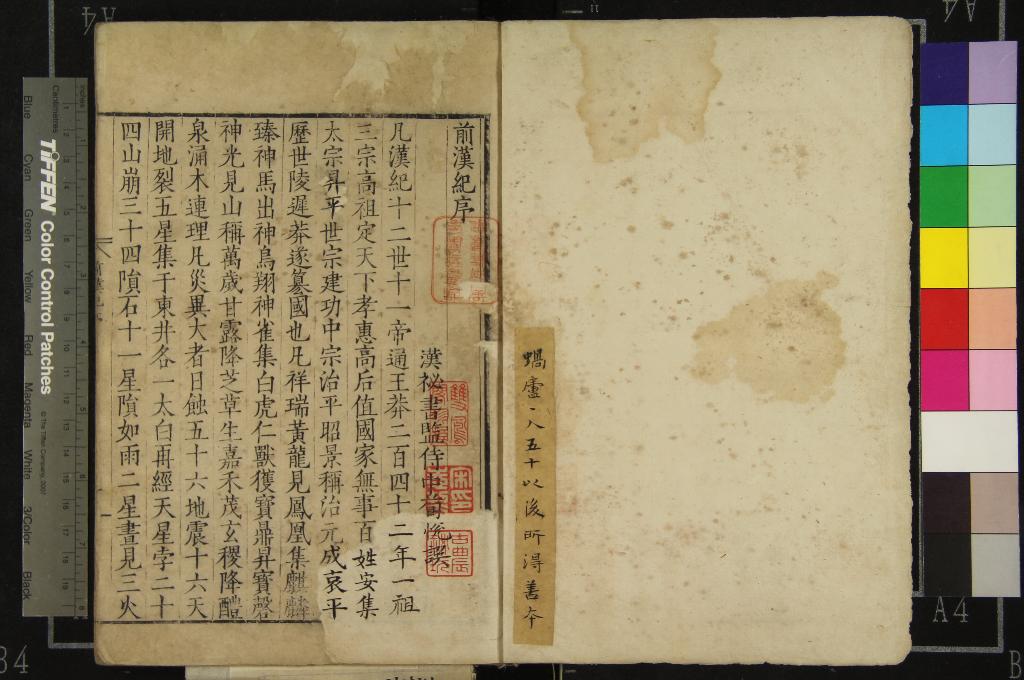 前漢紀序
漢祕書監侍中荀悅譔
凡漢紀十二世十一帝通王莽二百四十二年一祖
三宗高祖定天下孝惠高后值國家無事百姓安集
太宗昇平世宗建功中宗治平昭景稱治元成哀平
歷世陵遲莽遂篡國也凡祥瑞黃龍見鳳凰集麒麟
臻神馬出神鳥翔神雀集白虎仁獸獲寶鼎昇寶磬
神光見山稱萬歲甘露降芝草生嘉禾茂玄稷降醴
泉涌木連理凡災異大者日蝕五十六地震十六天
開地裂五星集于東井各一太白再經天星孛二十
四山崩三十四隕石十一星隕如雨二星晝見三火
蝸廬八五十以後所得善本
TIFFEN Color Control Patches
© The Tiffen Company, 2007
Inches
Centimetres
Blue
Cyan
Green
Yellow
Red
Magenta
White
3/Color
Black
A4
B4
A4
A4
B